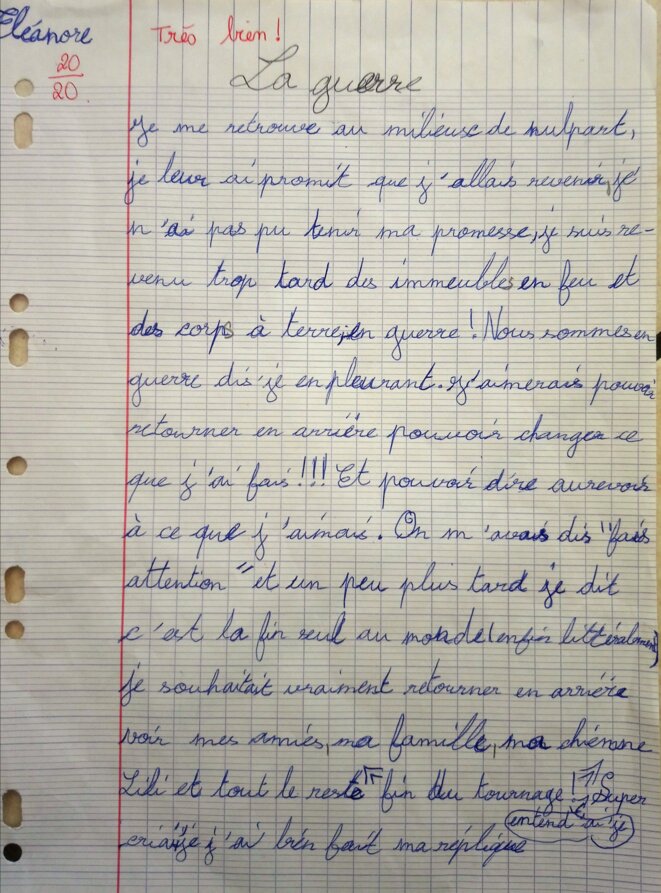 Eléanore
Très bien !
20
20
La guerre
Je me retrouve au milieux de nulpart,
je leur ai promit que j'allais revenir, je
n'ai pas pu tenir ma promesse, je suis re-
venu trop tard des immeubles en feu et
des corps à terre, en guerre ! Nous sommes en
guerre dis'je en pleurant. J'aimerais pouvoir
retourner en arrière pouvoir changer ce
que j'ai fais !!! Et pouvoir dire aurevoir
à ce que j'aimais. On m'avais dis "fais
attention" et un peu plus tard je dit
c'est la fin seul au monde (enfin littéralement)
je souhaitait vraiment retourner en arrière
voir mes amies, ma famille, ma chienne
Lili et tout le reste fin du tournage ! Super
entend ai'je
criai'je j'ai bien fait ma réplique